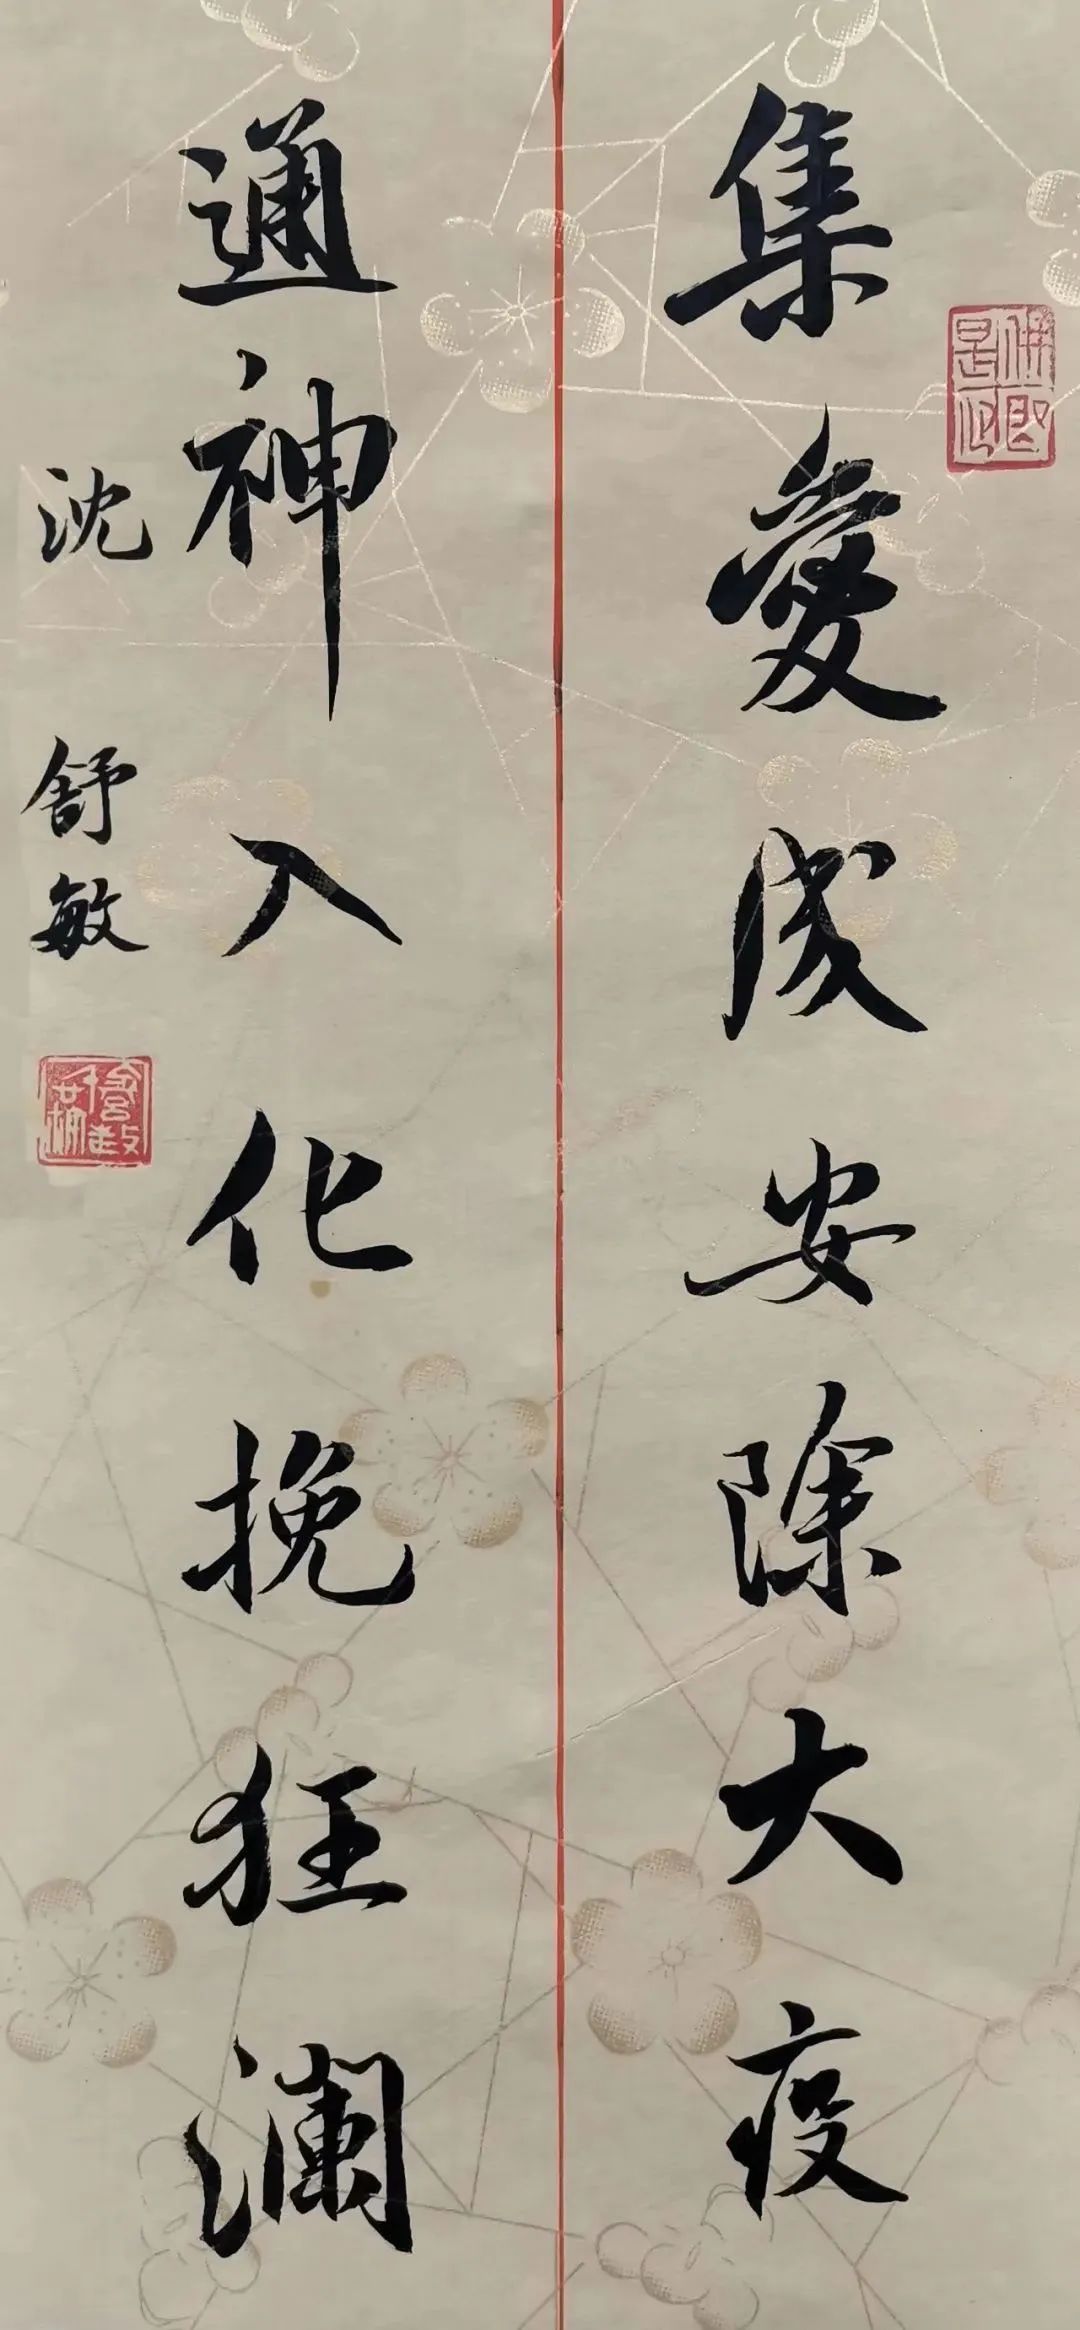 集愛成安除大疫
通神入化挽狂瀾
沈舒敏